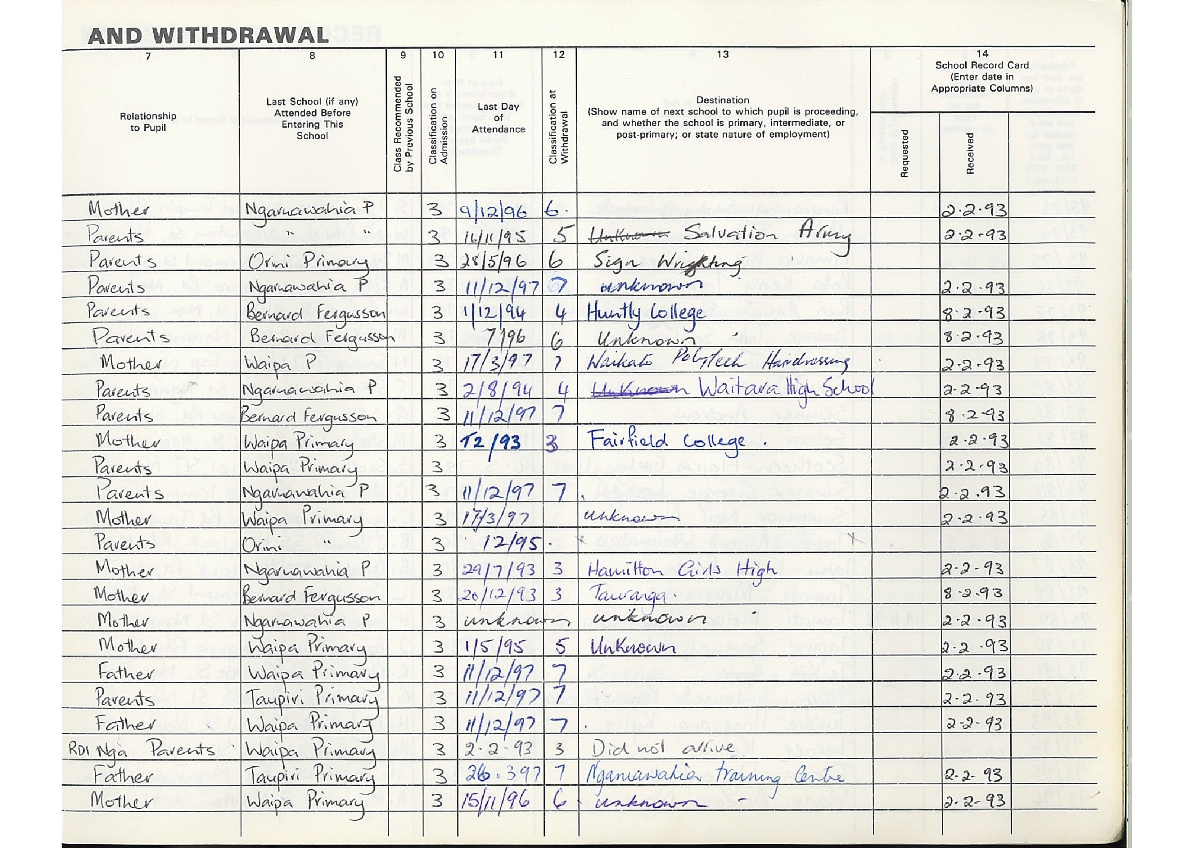 AND WITHDRAWAL
7 8 9 10 11 12 13 14
Relationship to Pupil
Last School (if any) Attended Before Entering This School
Class Recommended by Previous School
Classification on Admission
Last Day of Attendance
Classification at Withdrawal
Destination (Show name of next school to which pupil is proceeding, and whether the school is primary, intermediate, or post-primary; or state nature of employment)
School Record Card (Enter date in Appropriate Columns)
Requested
Received
Mother Ngaruawahia P 3 9/12/96 6. 2.2.93
Parents " " 3 16/11/95 5 Unknown Salvation Army 2.2.93
Parents Orini Primary 3 28/5/96 6 Sign Wrighting
Parents Ngaruawahia P 3 11/12/97 7 unknown 2.2.93
Parents Bernard Fergusson 3 1/12/94 4 Huntly College 8.2.93
Parents Bernard Fergusson 3 7/96 6 Unknown 8.2.93
Mother Waipa P 3 17/3/97 7 Waikato Polytech Hairdressing 2.2.93
Parents Ngaruawahia P 3 2/8/94 4 Unknown Waitara High School 2.2.93
Parents Bernard Fergusson 3 11/12/97 7 8.2.93
Mother Waipa Primary 3 12/93 3 Fairfield College. 2.2.93
Parents Waipa Primary 3 2.2.93
Parents Ngaruawahia P 3 11/12/97 7 2.2.93
Mother Waipa Primary 3 17/3/97 unknown 2.2.93
Parents Orini " 3 12/95.
Mother Ngaruawahia P 3 29/7/93 3 Hamilton Girls High 2.2.93
Mother Bernard Fergusson 3 20/12/93 3 Tauranga. 8.2.93
Mother Ngaruawahia P 3 unknown unknown 2.2.93
Mother Waipa Primary 3 1/5/95 5 Unknown 2.2.93
Father Waipa Primary 3 11/12/97 7 2.2.93
Parents Taupiri Primary 3 11/12/97 7 2.2.93
Father Waipa Primary 3 11/12/97 7 2.2.93
RD1 Nga Parents Waipa Primary 3 2.2.93 3 Did not arrive
Father Taupiri Primary 3 26.3 97 7 Ngaruawahia training Centre 2.2.93
Mother Waipa Primary 3 15/11/96 6 unknown 2.2.93